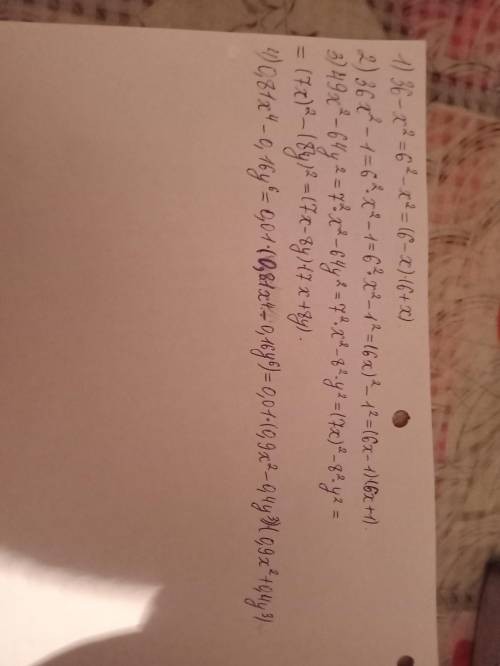 1) 36-x²=6²-x²=(6-x)·(6+x).
2) 36x²-1=6²·x²-1=6²·x²-1²=(6x)²-1²=(6x-1)(6x+1).
3) 49x²-64y²=7²·x²-64y²=7²·x²-8²·y²=(7x)²-8²·y²=
=(7x)²-(8y)²=(7x-8y)·(7x+8y).
4) 0,81x⁴-0,16y⁶=0,01·(0,81x⁴-0,16y⁶)=0,01·(0,9x²-0,4y³)(0,9x²+0,4y³).